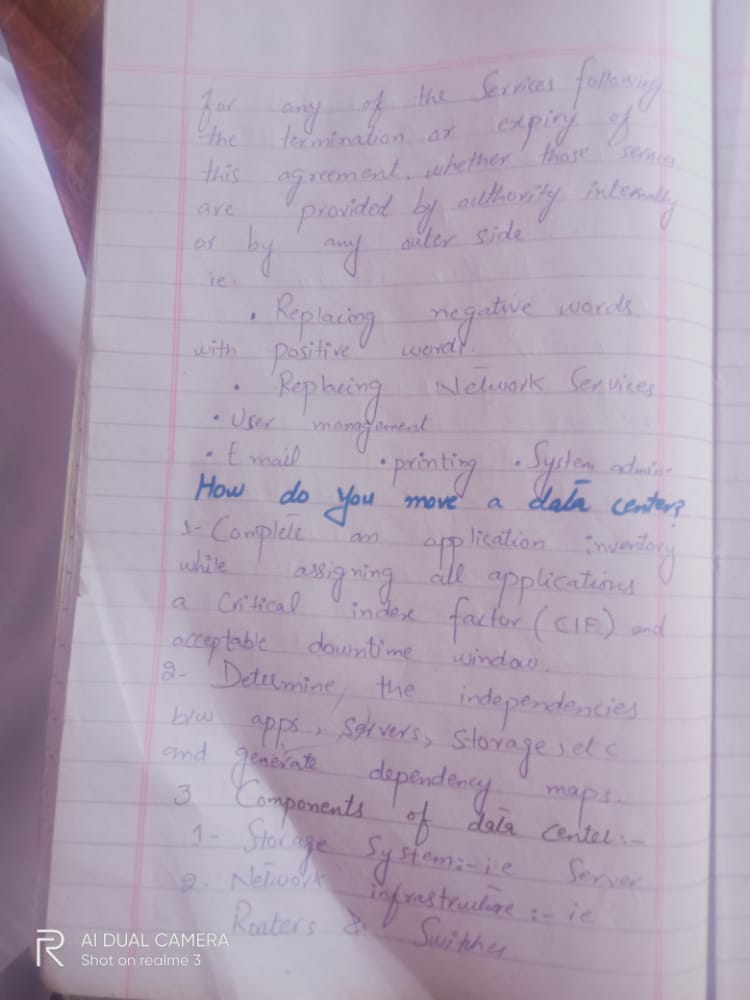 for any of the Services following
the termination or expiry of
this agreement, whether those services
are provided by authority internally
or by any outer side
ie.
• Replacing negative words
with positive words.
• Replacing Network Services
• User management
• Email • printing • System admin
How do you move a data center?
1- Complete an application inventory
while assigning all applications
a Critical index factor (CIF) and
acceptable downtime window.
2- Determine the independencies
b/w apps, servers, storage, etc
and generate dependency maps.
3 Components of data center:-
1- Storage System:- i.e Server
2. Network infrastructure :- ie
Routers & Switches
R AI DUAL CAMERA
Shot on realme 3